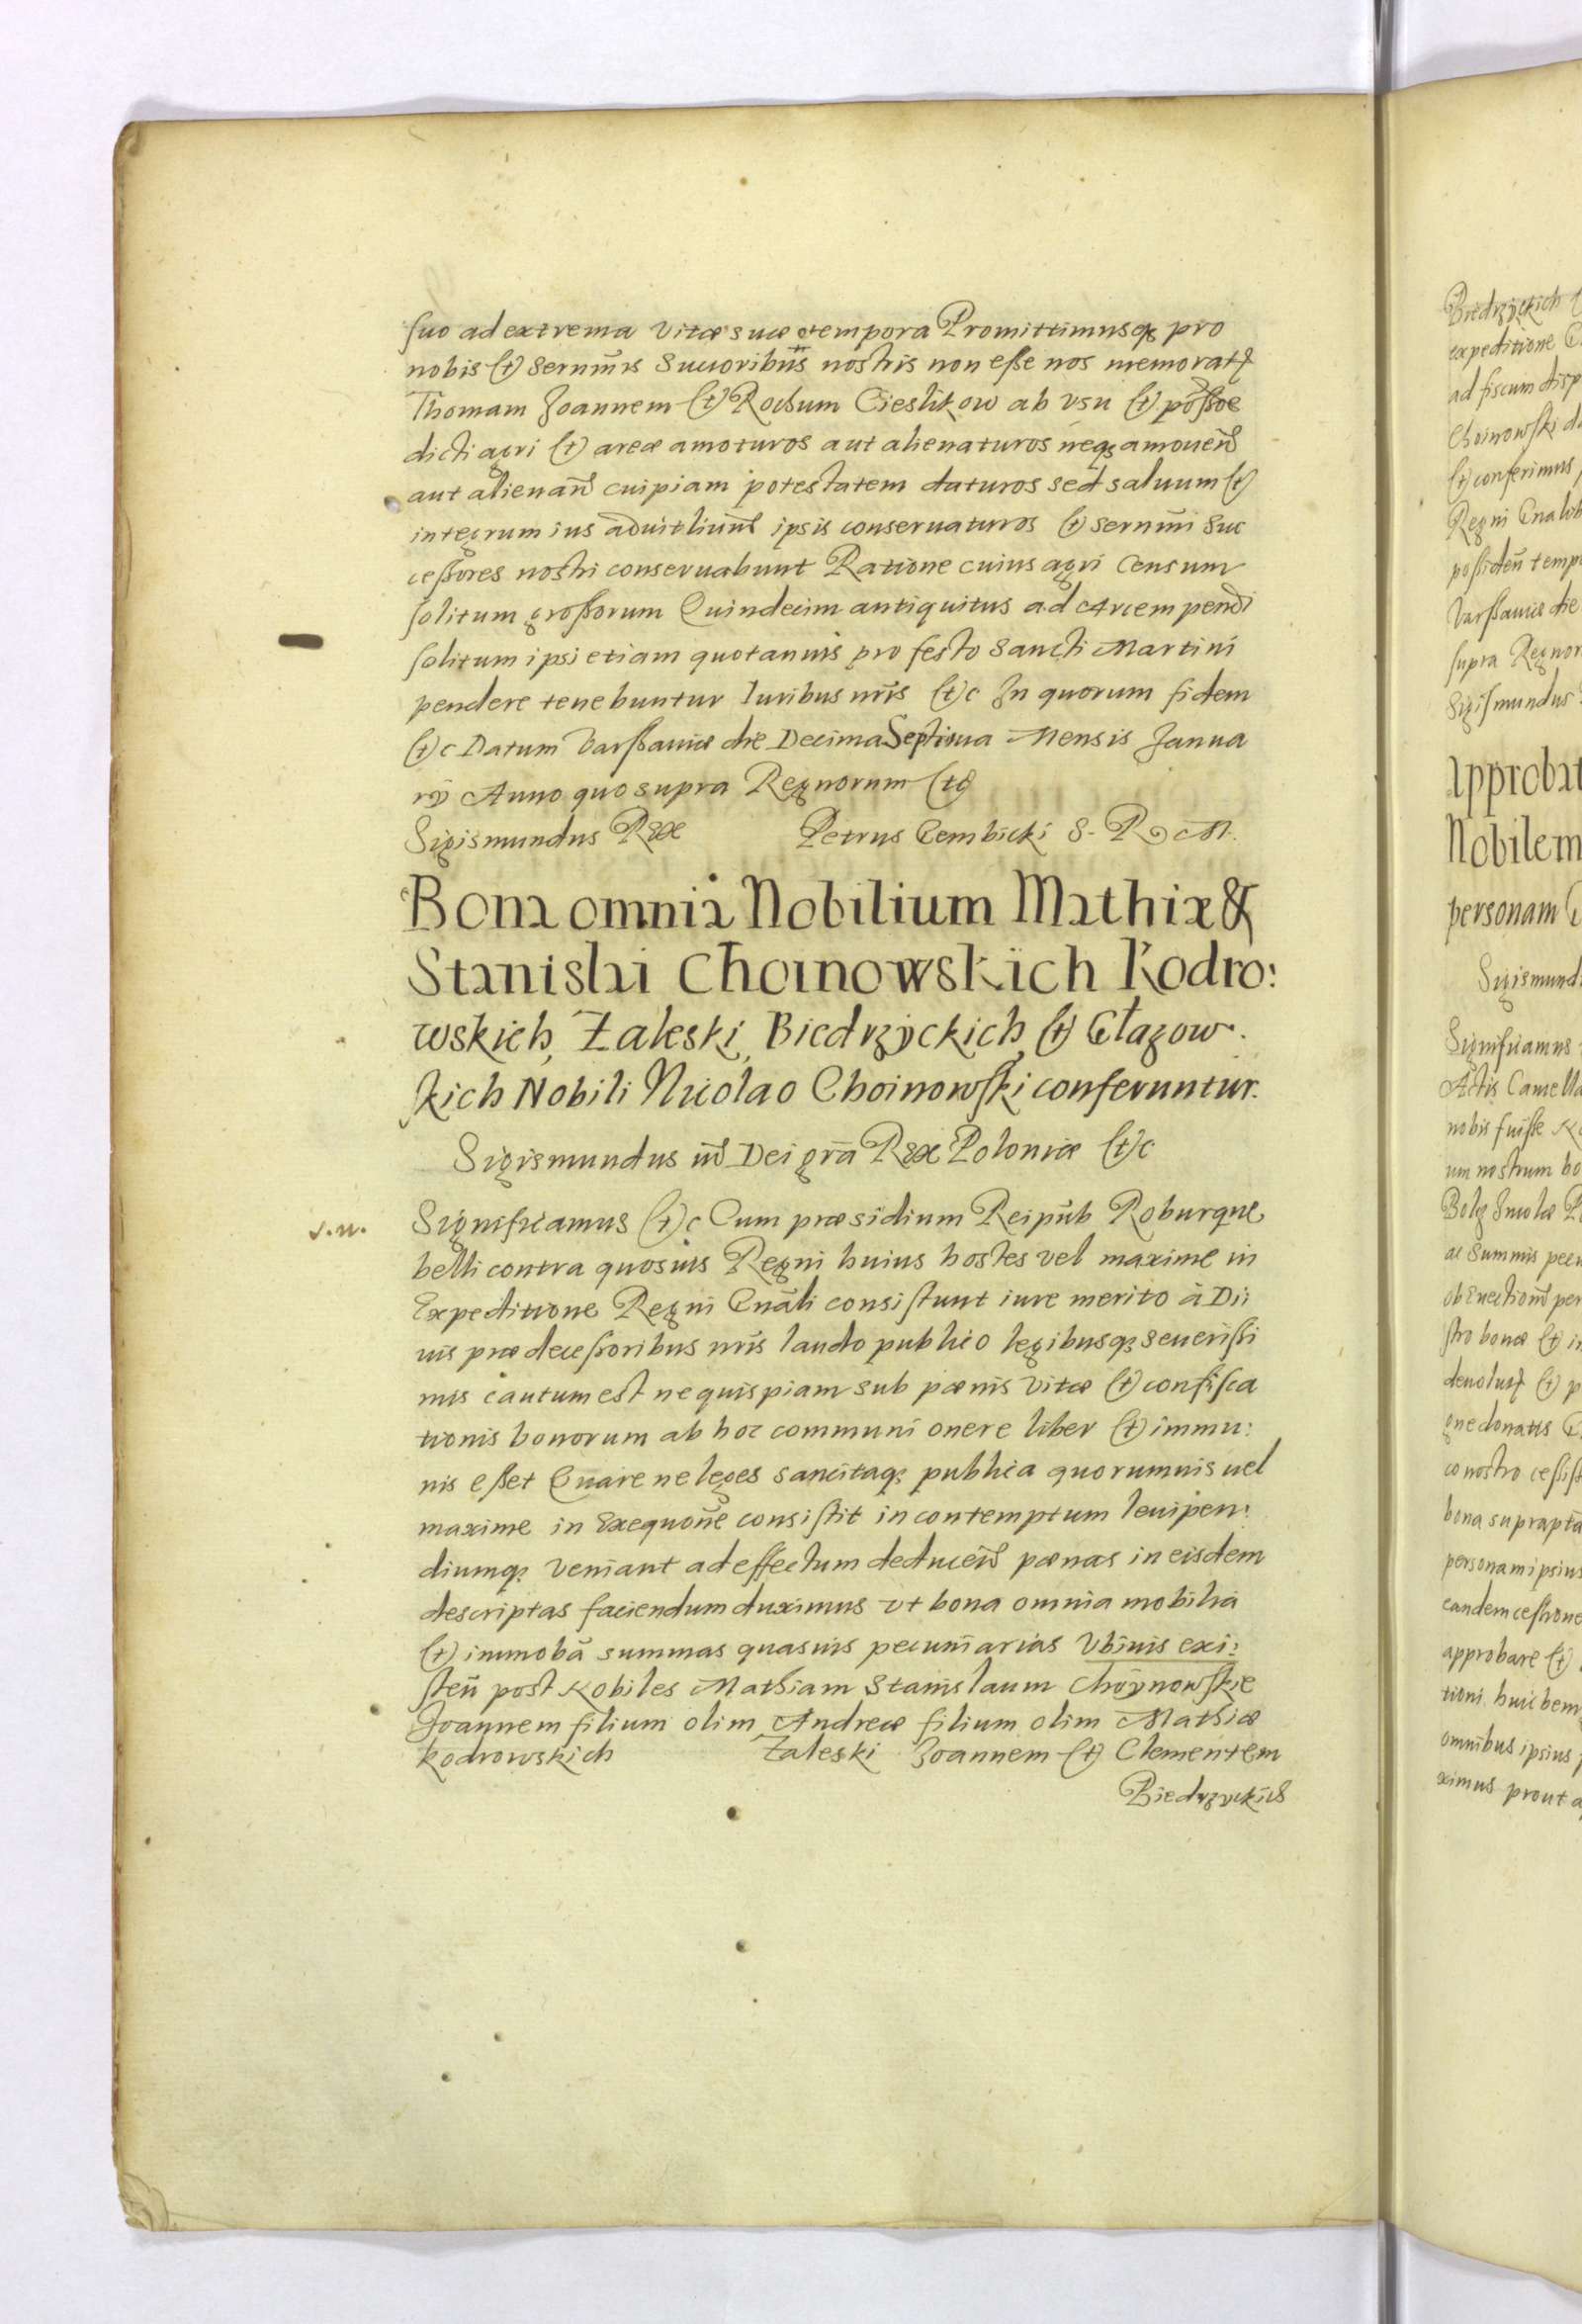 suo ad extrema vitæ suæ tempora Promittimusq; pro
nobis et Sernmis Succoribus nostris non esse nos memorat
Thomam Joannem et Rochum Cieslikow ab vsu et possõe
dicti agri et areæ amoturos aut alienaturos neq; amouend
aut alienand cuipiam potestatem daturos sed saluum et
integrum ius aduitlium ipsis conseruaturos et sernmi Suc
cessores nostri conseruabunt Ratione cuius agri Censum
solitum grossorum Quindecim antiquitus ad Arcem pendi
solitum ipsi etiam quotannis pro festo Sancti Martini
pendere tenebuntur Iuribus nris etc In quorum fidem
etc Datum Varssauiæ die Decima Septima Mensis Janua
rij Anno quo supra Regnorum etc
Sigismundus Rex Petrus Gembicki S. R. M.
Bona omnia Nobilium Mathiæ &
Stanislai Choinowskich Kodro:
wskich, Zaleski, Biedrzyckich, et Głazow:
skich Nobili Nicolao Choinowski conferuntur.
Sigismundus iii Dei gra Rex Poloniæ etc
Significamus etc Cum præsidium Reipub Roburque
belli contra quosuis Regni huius hostes vel maxime in
Expeditione Regni Gnali consistunt iure merito à Di
uis prædecessoribus nris laudo publico legibusq; seuerissi
mis cautum est ne quispiam sub pænis vitæ et confisca
tionis bonorum ab hoc communi onere liber et immu:
nis esset Quare ne leges sancitaq; publica quorumuis uel
maxime in Exequone consistit in contemptum leuipen:
diumq; veniant ad effectum deducend pænas in eisdem
descriptas faciendum duximus vt bona omnia mobilia
et immoba summas quasuis pecuniarias vbiuis exi:
sten post Nobiles Mathiam Stanislaum Choynowskie
Joannem filium olim Andreæ filium olim Mathiæ
Kodrowskich Zaleski Joannem et Clementem
Biedrzyckich
Biedrzyckich
expeditione
ad fiscum disp
Choinowski
et conferimus
Regni Gnalib
possiden temp
Varssauiæ die
supra Regnor
Sigismundus
Approbat
Nobilem
personam
Sigismund
Significamus
Actis Cancella
nobis fuisse
um nostrum bo
ac Summis pecu
stro bonæ et
deuolut et p
gne donatis
co nostro cessis
bona suprapta
personam ipsius
eandem cessione
approbare et
tioni huic
omnibus ipsius
ximus prout